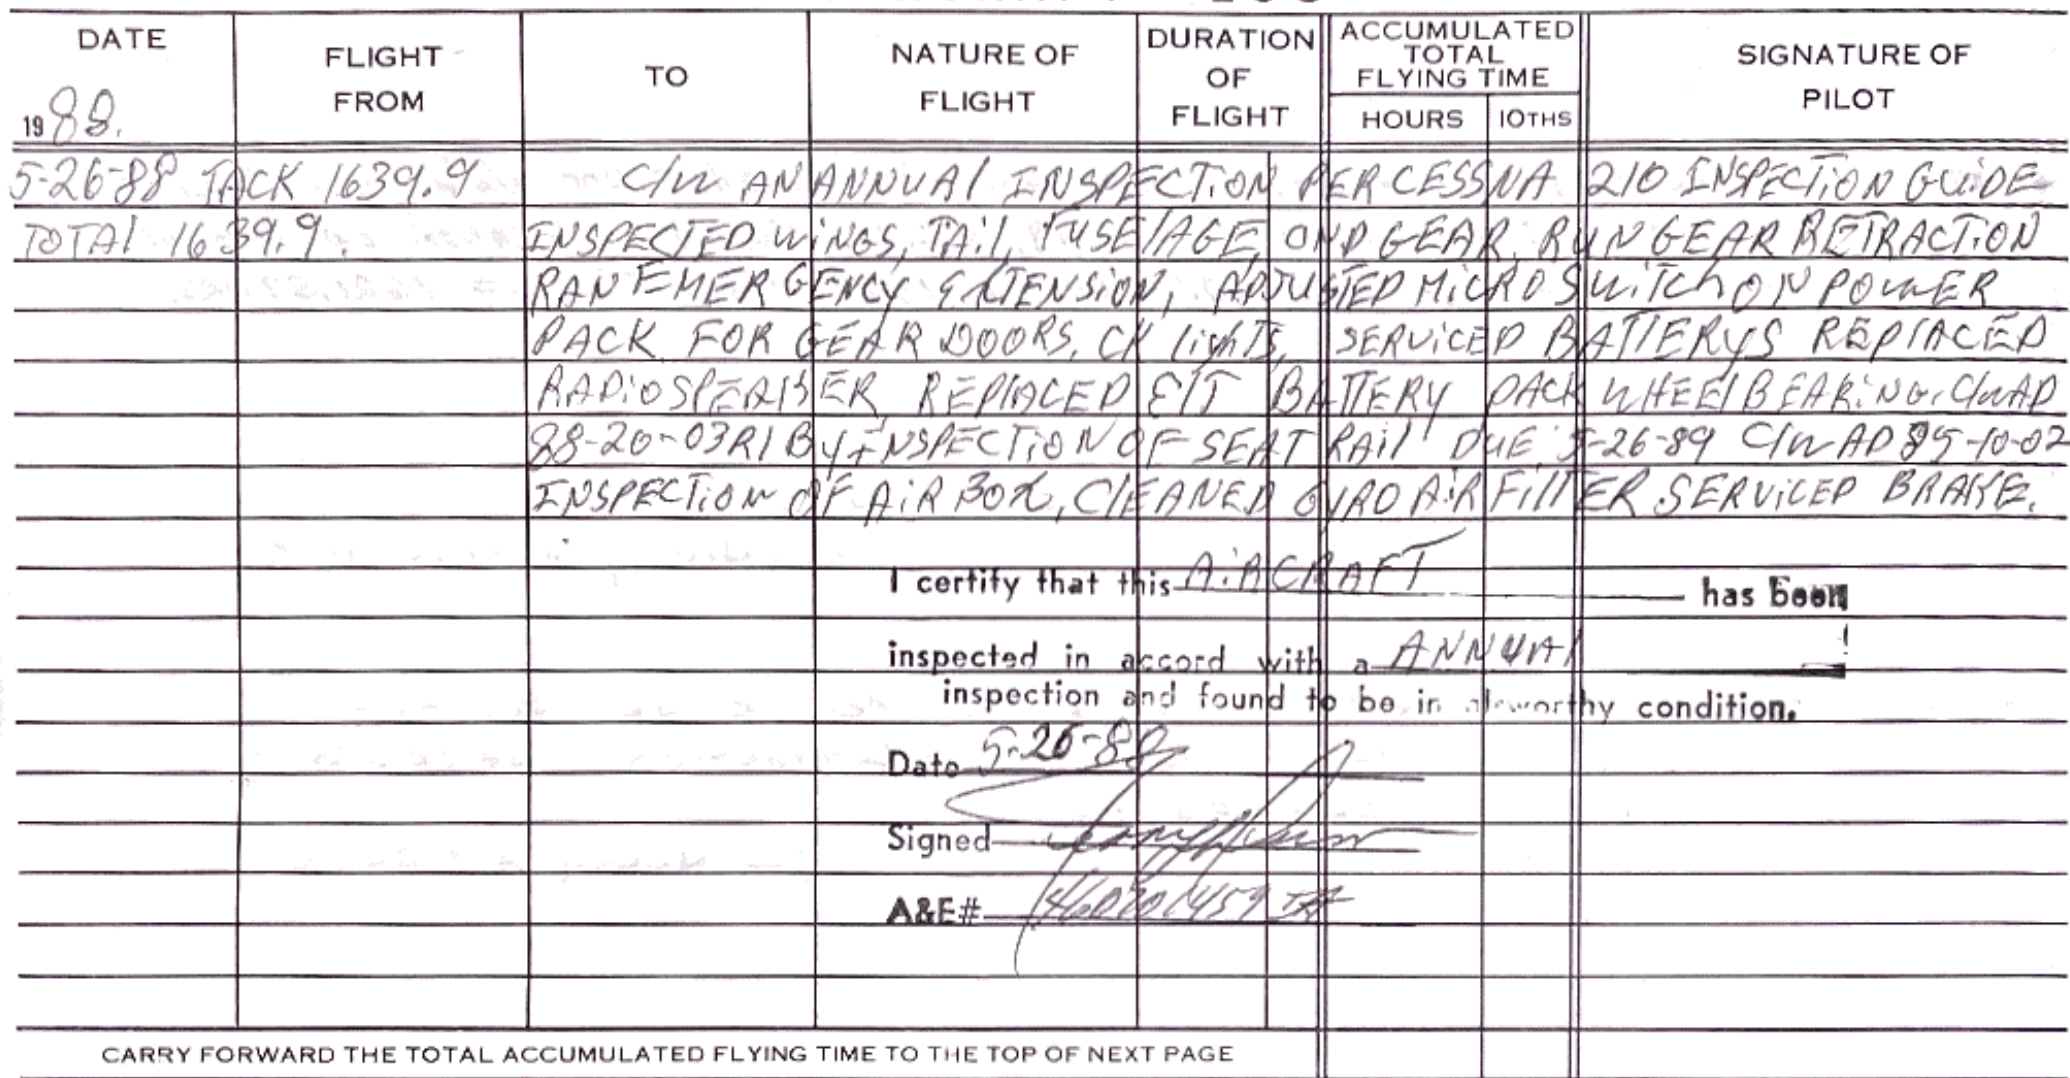 DATE
1988.
FLIGHT FROM
TO
NATURE OF FLIGHT
DURATION OF FLIGHT
ACCUMULATED TOTAL FLYING TIME
HOURS
10THS
SIGNATURE OF PILOT
5-26-88 TACK 1639.9 C/W AN ANNUAL INSPECTION PER CESSNA 210 INSPECTION GUIDE
TOTAL 1639.9. INSPECTED WINGS, TAIL, FUSELAGE, AND GEAR, RUN GEAR RETRACTION
RAN EMERGENCY EXTENSION, ADJUSTED MICRO SWITCH ON POWER
PACK FOR GEAR DOORS, CK lights, SERVICED BATTERYS REPLACED
RADIO SPEAKER REPLACED BATTERY PACK WHEEL BEARING, C/W AD
88-20-03R1 By INSPECTION OF SEAT RAIL DUE 5-26-89 C/W AD 85-10-02
INSPECTION OF AIR BOX, CLEANED GYRO AIR FILTER SERVICED BRAKE.
I certify that this AIRCRAFT has been
inspected in accord with a ANNUAL
inspection and found to be in airworthy condition.
Date 5-26-88
Signed
A&E#
CARRY FORWARD THE TOTAL ACCUMULATED FLYING TIME TO THE TOP OF NEXT PAGE